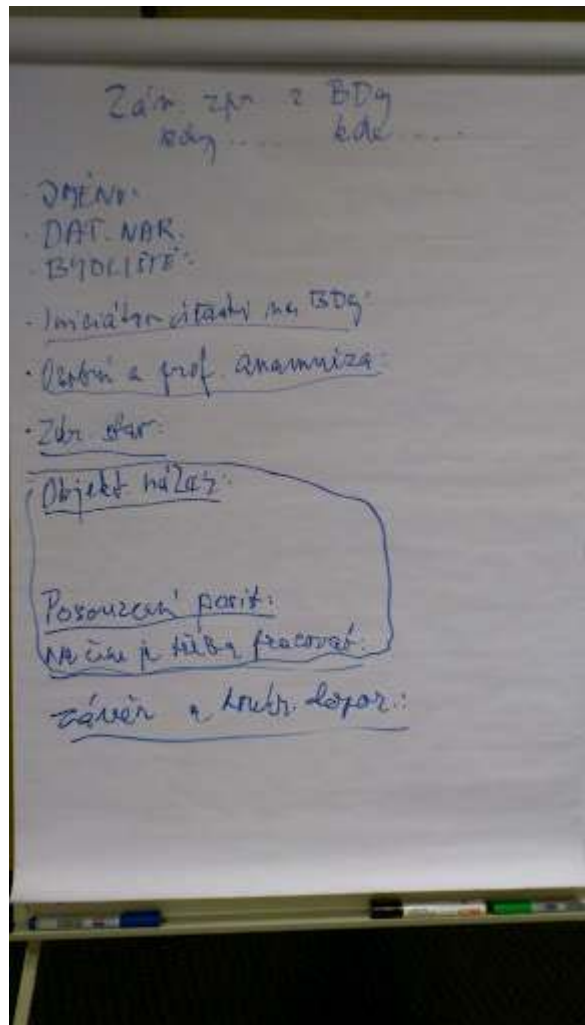 Záv. zpr. z BDg
kdy .... kde .....
· JMÉNO:
· DAT. NAR.
· BYDLIŠTĚ:
· Iniciátor účasti na BDg:
· Osobní a prof. anamnéza:
· Zdr. stav:
Objekt. nález:
Posouzení posit:
Na čem je třeba pracovat:
závěr a konkr. dopor.: